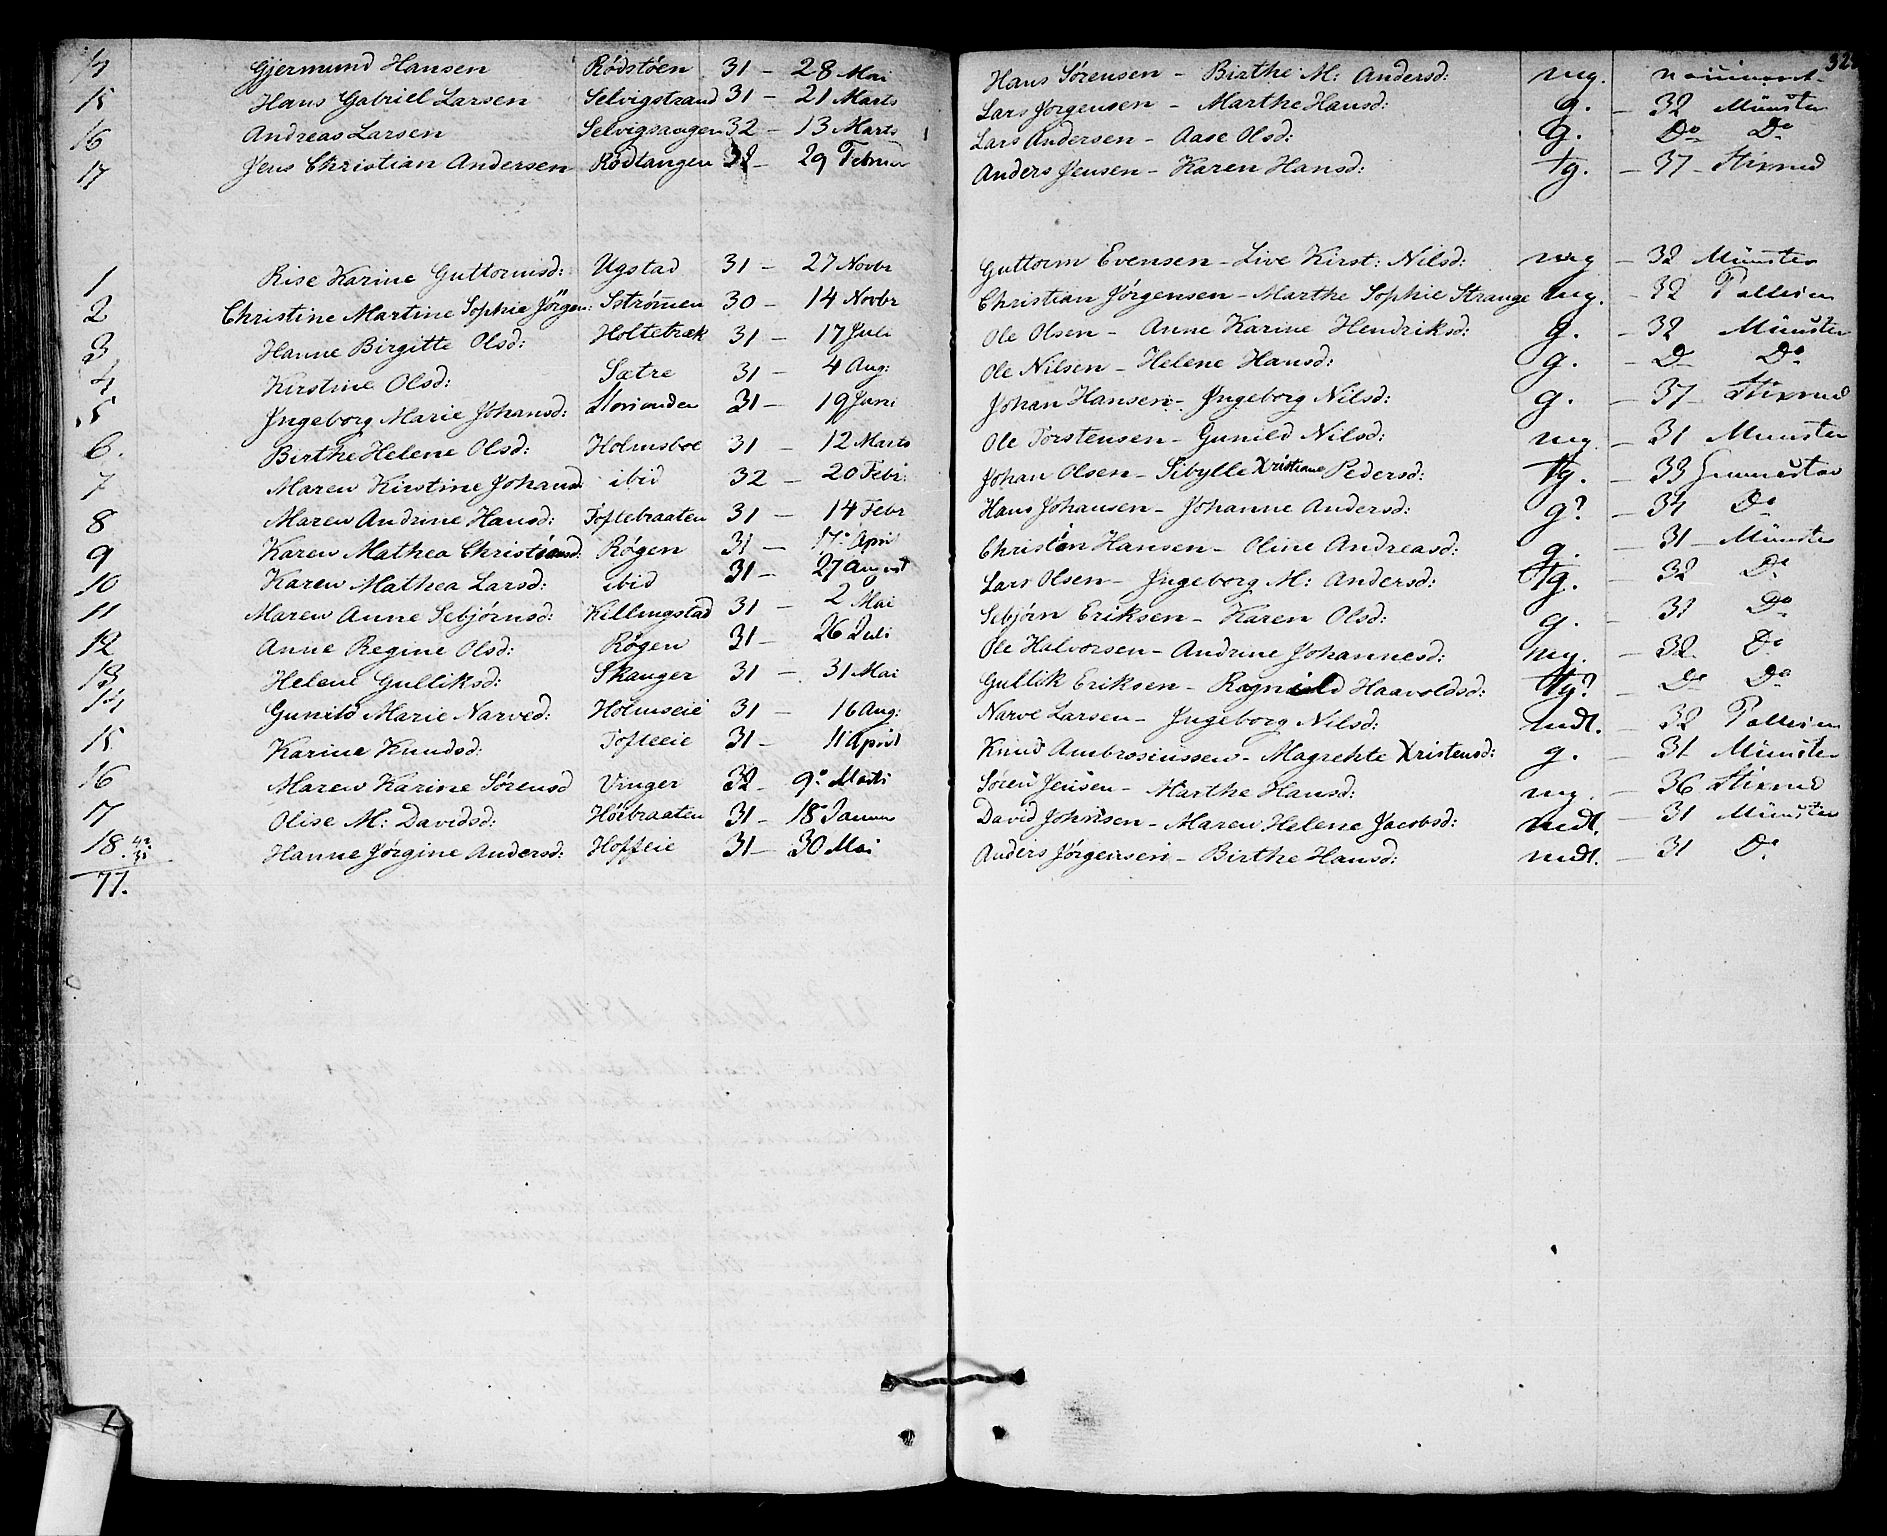 323
14 Gjermund Hansen Rødstøen 31 - 28 Mai Hans Sørensen - Birthe M: Andersd: mg.
15 Hans Gabriel Larsen Selvigstrand 31 - 21 Marts Lars Jørgensen - Marthe Hansd: g. - 32 Münster
16 Andreas Larsen Selvigsangen 32 - 13 Marts Lars Andersen - Aase Olsd: g. Do Do
17 Jens Christian Andersen Rødtangen 32 - 29 Februar Anders Jensen - Karen Hansd: tg. - 37 - Stixrud
1 Rise Karine Guttormsd: Ugstad 31 - 27 Novbr Guttorm Evensen - Live Kirst: Nilsd: mg - 32 Münster
2 Christine Martine Sophie Jörgen: Strömen 30 - 14 Novbr Christian Jørgensen - Marthe Sophie Strange mg. - 32
3 Hanne Birgitte Olsd: Holtebræk 31 - 17 Juli Ole Olsen - Anne Karine Hendriksd: g. - 32 Münster
4 Kirstine Olsd: Sætre 31 - 4 Aug: Ole Nilsen - Helene Hansd: g. - Do Do
5 Ingeborg Marie Johansd: 31 - 19 Juni Johan Hansen - Ingeborg Nilsd: g. - 37 Stixrud
6. Birthe Helene Olsd: Holmsboe 31 - 12 Marts Ole Torstensen - Gunild Nilsd: mg. - 31 Munster
7 Maren Kirstine Johansd: ibid 32 - 20 Febr: Johan Olsen - Sibylle Xristiane Pedersd: tg. - 33
8 Maren Andrine Hansd: Toftebraaten 31 - 14 Febr Hans Johansen - Johanne Andersd: g? - 31 Do
9 Karen Mathea Christiansd: Røgen 31 - 17 April Christian Hansen - Oline Andreasd: g. - 31 - Münster
10 Karen Mathea Larsd: ibid 31 - 27 August Lars Olsen - Ingeborg M: Andersd: tg. - 32 Do
11 Maren Anne Sebjørnsd: Killingstad 31 - 2 Mai Sebjørn Eriksen - Karen Olsd: g. - 31 Do
12 Anne Regine Olsd: Røgen 31 - 26 Juli Ole Halvorsen - Andrine Johannesd: mg. - 32. Do
13 Helene Gulliksd: Skauger 31 - 31 Mai Gullik Eriksen - Ragnild Haavoldsd: tg? - Do Do
14 Gunild Marie Narved: Holmseie 31 - 16 Aug: Narve Larsen - Ingeborg Nilsd: mdt. - 32
15 Karine Knudsd: Tofteeie 31 - 11 April Knud Ambrosiussen - Magrehte Xristensd: g. - 31 Münster
16 Maren Karine Sørensd Vinger 32 - 9 Marts Søren Jensen - Marthe Hansd: mg. - 36 Stixrud
17 Olise M: Davidsd: Høibraaten 31 - 18 Januar David Johnsen - Maren Helene Jacobsd: mdt. - 31 Münster
18. Hanne Jørgine Andersd: Hoffeie 31 - 30 Mai Anders Jørgensen - Birthe Hansd: mdt. - 31 Do
77.